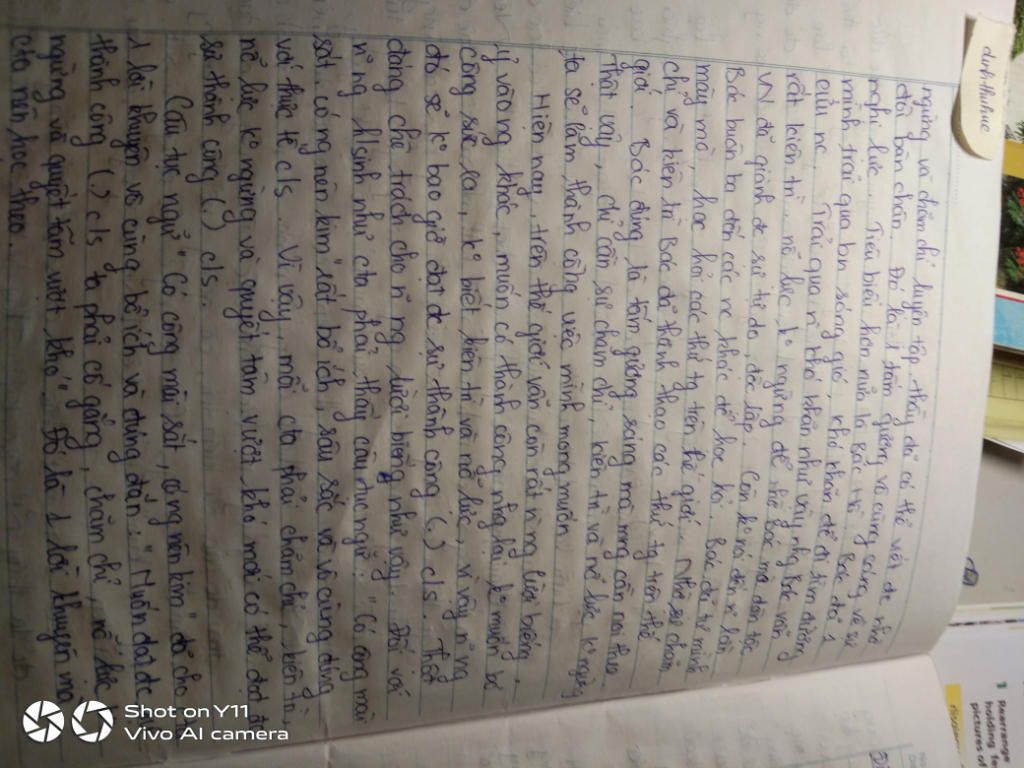 ngừng và chăm chỉ luyện tập thầy đã có thể viết đc nhờ
đôi bàn chân. Đó là 1 tấm gương vô cùng sáng về sự
nghị lực. Tiêu biểu hơn nữa là Bác Hồ. Bác đã 1
mình trải qua bn sóng gió, khó khăn để đi tìm đường
cứu nc. Trải qua n~ khó khăn như vậy nhg Bác vẫn
rất kiên trì, nỗ lực k° ngừng để nhờ Bác mà dân tộc
VN đã giành đc sự tự do, độc lập. Còn k° nói đến n~ lần
Bác buôn ba đến các nc khác để học hỏi. Bác đã tự mình
mày mò, học hỏi các thứ tg trên thế giới. Nhờ sự chăm
chỉ và kiên trì Bác đã thành thạo các thứ tg trên thế
giới. Bác đúng là tấm gương sáng mà mng cần noi theo
Thật vậy, chỉ cần sự chăm chỉ, kiên trì và nỗ lực k° ngừng
ta sẽ làm thành công việc mình mong muốn.
Hiện nay, trên thế giới vẫn còn rất n~ ng lười biếng,
ỷ vào ng khác, muốn có thành công nhg lại k° muốn bỏ
công sức ra, k° biết kiên trì và nỗ lực, vì vậy n~ ng
đó sẽ k° bao giờ đạt đc sự thành công (.) c/s. Thật
đáng chê trách cho n~ ng lười biếng như vậy. Đối với
n~ ng h/sinh như cta phải thấy câu tục ngữ: "Có công mài
sắt có ng nên kim" rất bổ ích, sâu sắc và vô cùng đúng
với thực tế c/s. Vì vậy, mỗi cta phải chăm chỉ, kiên trì,
nỗ lực k° ngừng và quyết tâm vượt khó mới có thể đạt đc
sự thành công (.) c/s.
Câu tục ngữ "Có công mài sắt, có ng nên kim" đã cho
1 lời khuyên vô cùng bổ ích và đúng đắn: "Muốn đạt đc
thành công (.) c/s ta phải cố gắng, chăm chỉ, nỗ lực k°
ngừng và quyết tâm vượt khó". Đó là 1 lời khuyên mà
cta nên học theo.
dinhthihue
Shot on Y11
Vivo AI camera
1 Rearrange
holding
pictures of